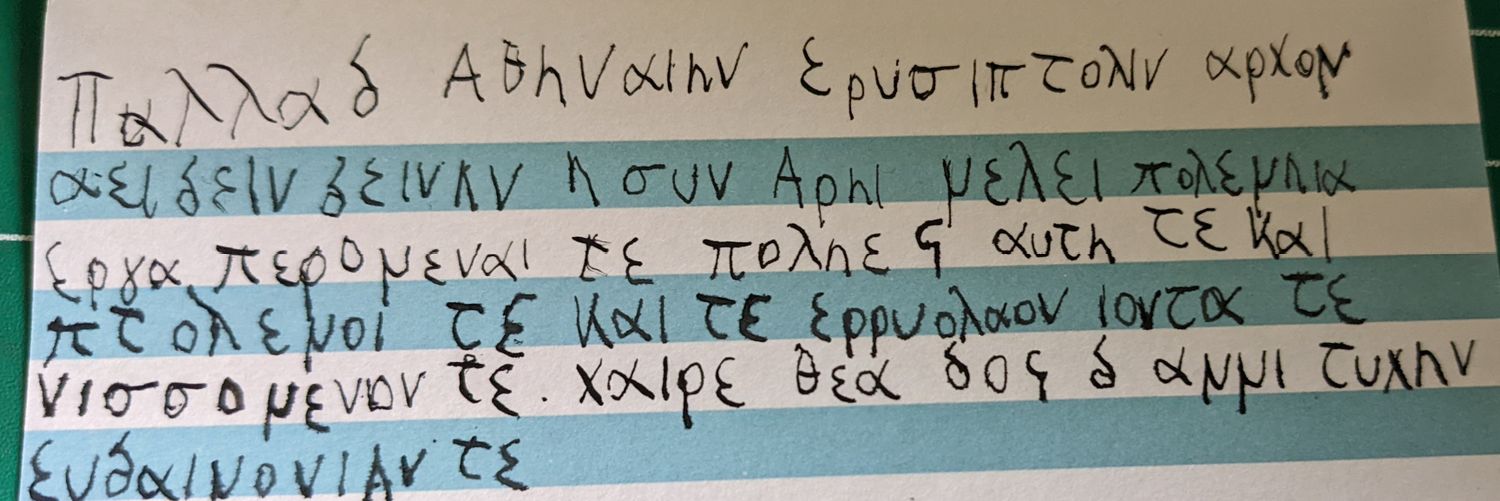 Παλλαδ Αθηναιην ερυσιπτολιν αρχομ
αειδειν δεινην η συν Αρηι μελει πολεμηια
εργα περομεναι τε πολης ς αυτη τε και
πτολεμοι τε και τε ερρυολαον ιοντα τε
νισσομενον τε. χαιρε θεα δος δ αμμι τυχην
ευδαιμονιαν τε